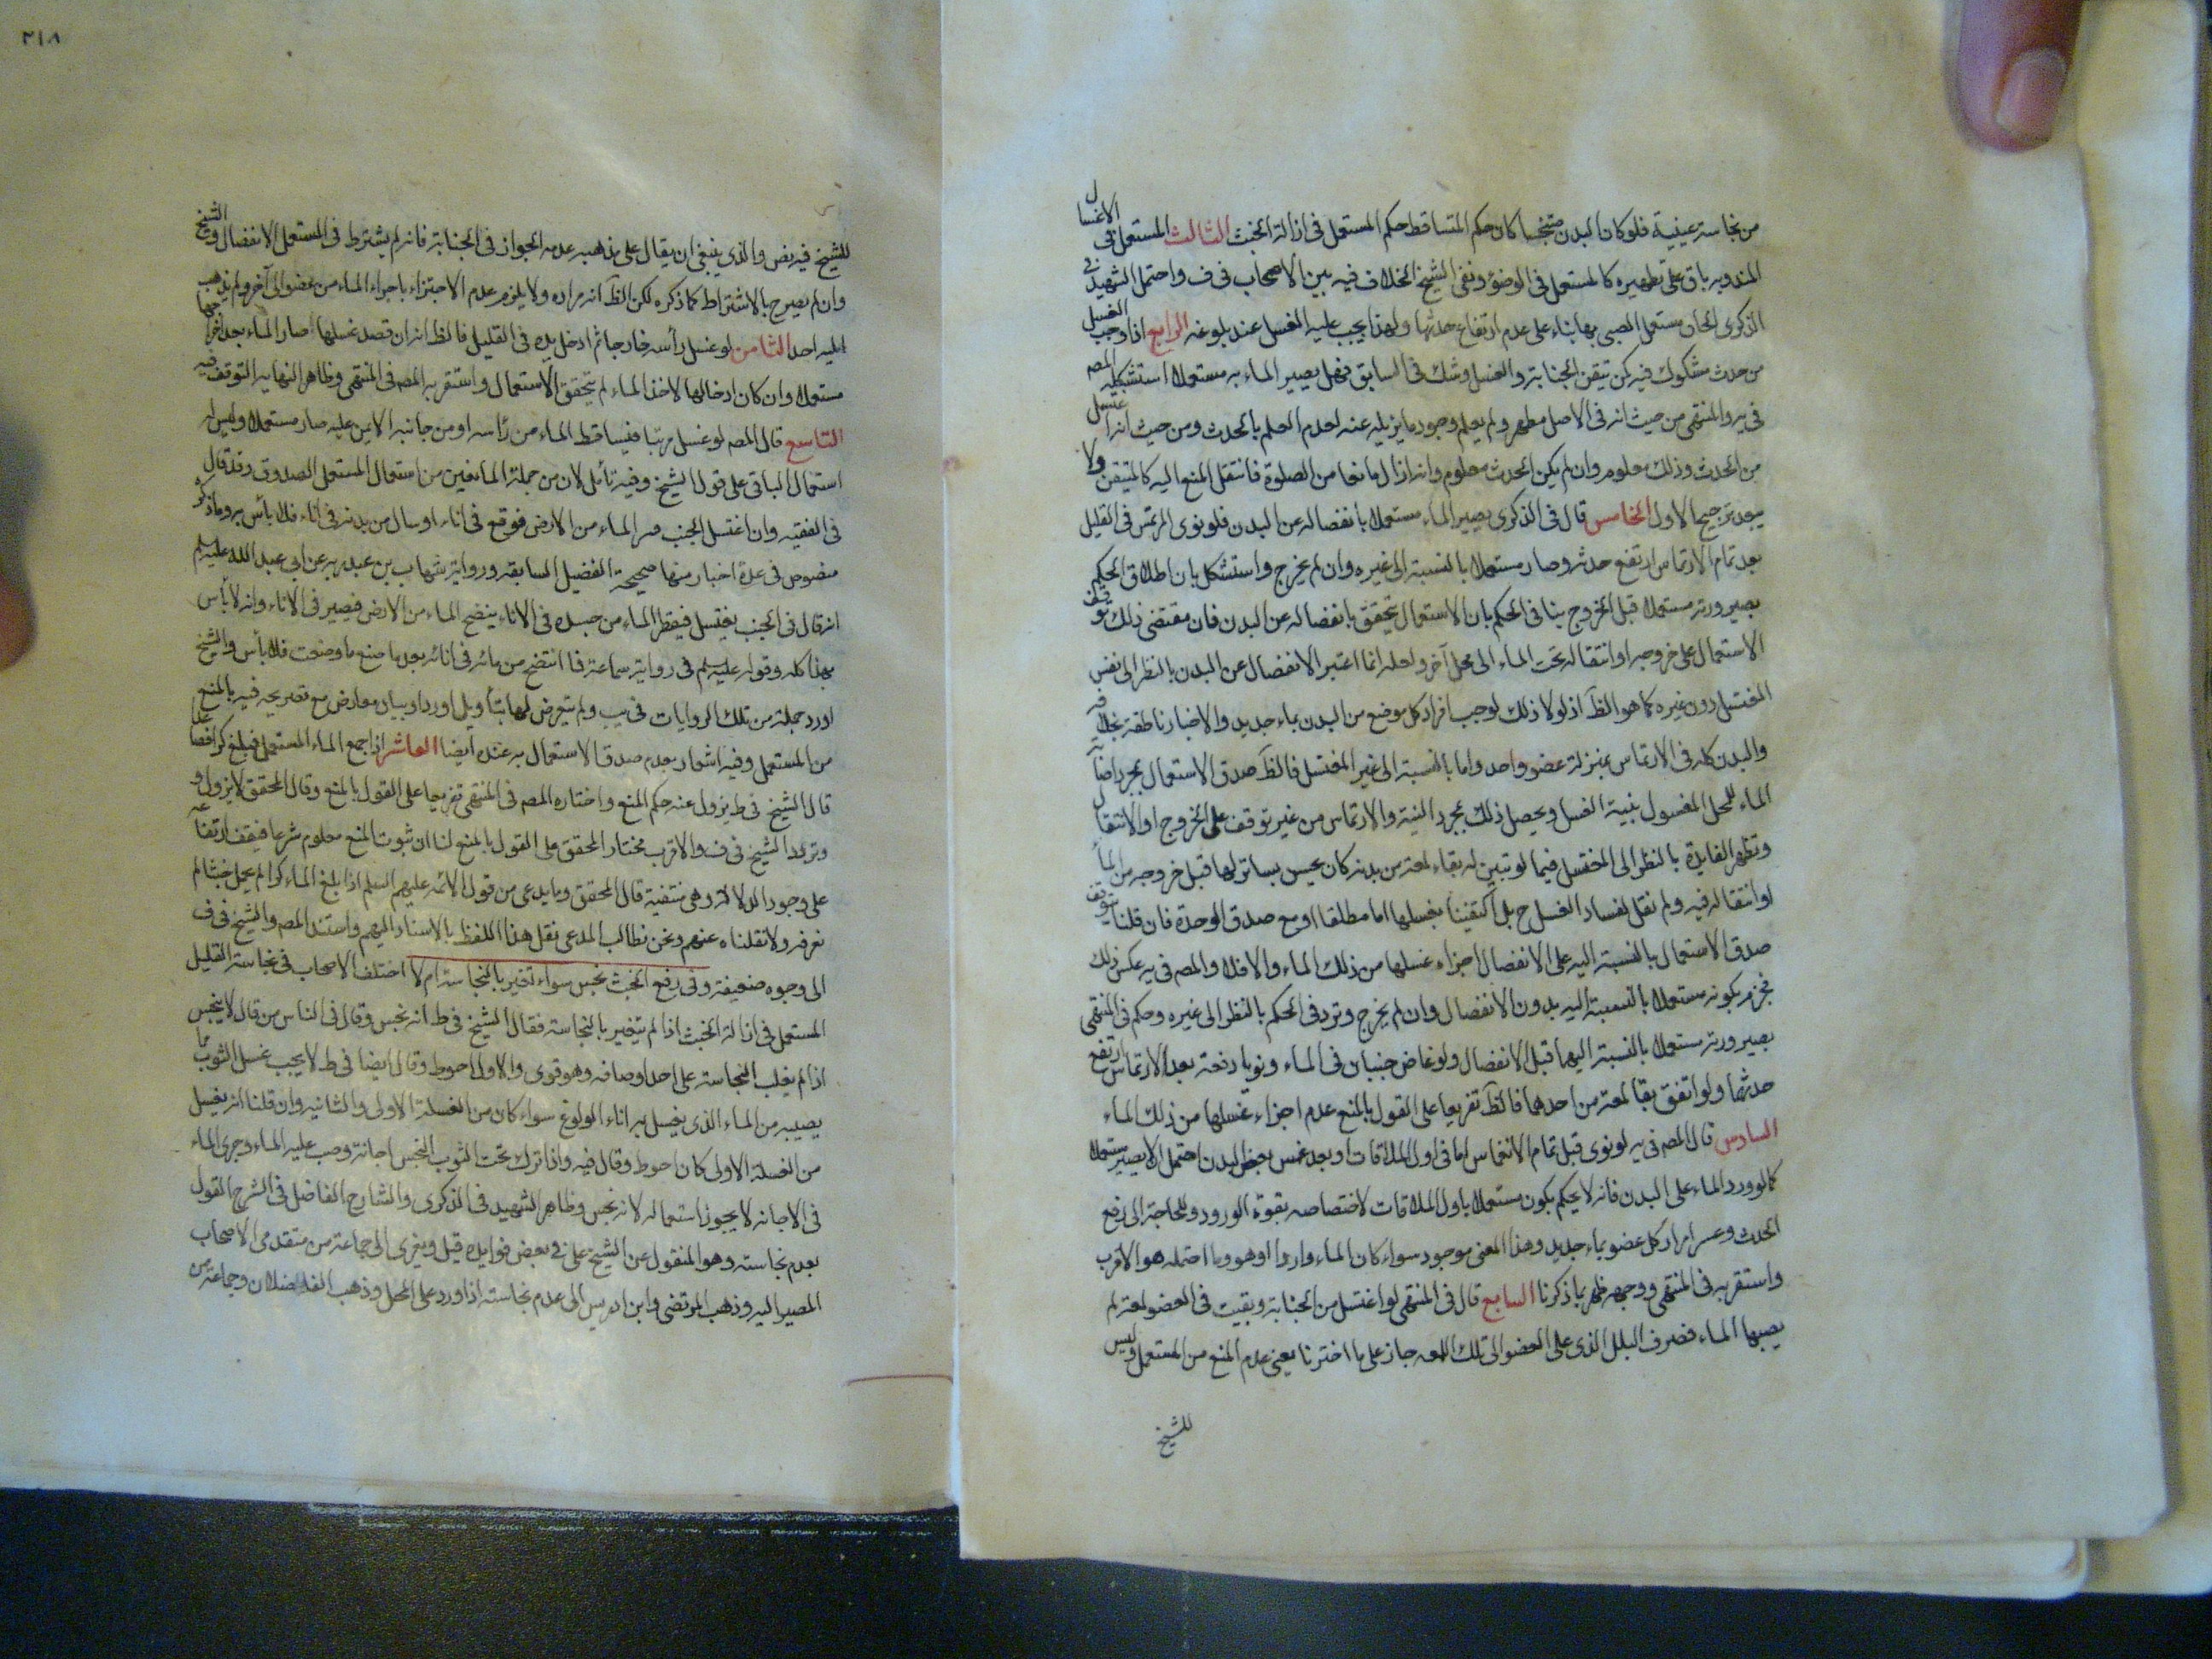 من نجاسة عينية فلو كان البدن متنجسا كان حكم المتساقط حكم المستعمل فى ازالة الخبث الثالث المستعمل فى الاغسال
المندوبه باق على تطهيره كالمستعمل فى الوضوء ونفى الشيخ الخلاف فيه بين الاصحاب فى ف واحتمل الشهيد فى
الذكرى الحاق مستعمل الصبى بها بناء على عدم ارتفاع حدثها ولهذا يجب عليه الغسل عند بلوغه الرابع اذا وجب الغسل
من حدث مشكوك فيه كمن تيقن الجنابة والغسل وشك فى السابق فهل يصير الماء به مستعملا استشكله المصم
فى يه والمنتهى من حيث انه فى الاصل مطهر ولم يعلم وجود ما يزيله عنه لعدم العلم بالحدث ومن حيث انه اغتسل
من الحدث وذلك معلوم وان لم يكن الحدث معلوم وانه ازال مانعا من الصلوة فانتقل المنع اليه كالمتيقن ولا
يبعد ترجيح الاول الخامس قال فى الذكرى يصير الماء مستعملا بانفصاله عن البدن فلو نوى المرتمس فى القليل
بعد تمام الارتماس ارتفع حدثه وصار مستعملا بالنسبة الى غيره وان لم يخرج واستشكل بان اطلاق الحكم
بصيرورته مستعملا قبل الخروج ينافى الحكم بان الاستعمال يتحقق بانفصاله عن البدن فان مقتضى ذلك توقف
الاستعمال على خروجه او انتقاله تحت الماء الى محل آخر ولعله انما اعتبر الانفصال عن البدن بالنظر الى نفس
المغتسل دون غيره كما هو الظاَ اذ لولا ذلك لوجب افراد كل موضع من البدن بماء جديد والاخبار ناطقة بخلافه
والبدن كله فى الارتماس بمنزلة عضو واحد واما بالنسبة الى غير المغتسل فالظاَ صدق الاستعمال بمجرد اصابة
الماء للمحل المغسول بنية الغسل ويحصل ذلك بمجرد النية والارتماس من غير توقف على الخروج او الانتقال
وتظهر الفايدة بالنظر الى المغتسل فيما لو تبين له بقاء لمعة من بدنه كان يحس بساتر لها قبل خروجه من الماء
او انتقاله فيه ولم نقل بفساد الغسل ح بل اكتفينا بغسلها اما مطلقا او مع صدق الوحدة فان قلنا بتوقف
صدق الاستعمال بالنسبة اليه على الانفصال اجزاء غسلها من ذلك الماء والا فلا والمصم فى يه عكس ذلك
فجزم بكونه مستعملا بالنسبة اليه بدون الانفصال وان لم يخرج وتردد فى الحكم بالنظر الى غيره وحكم فى المنتهى
بصيرورته مستعملا بالنسبة اليهما قبل الانفصال ولو غاص جنبان فى الماء ونويا دفعة بعد الارتماس ارتفع
حدثهما ولو اتفق بقا لمعة من احدهما فالظاَ تفريعا على القول بالمنع عدم اجزاء غسلها من ذلك الماء
السادس قال المصم فى يه لو نوى قبل تمام الانغماس اما فى اول الملاقات او بعد غمس بعض البدن احتمل الا يصير مستعملا
كالو ورد الماء على البدن فانه لا يحكم بكون مستعملا باول الملاقات لاختصاصه بقوة الورود وللحاجة الى رفع
الحدث وعسر افراد كل عضو بماء جديد وهذا المعنى موجود سواء كان الماء واردا او هو وما احتمله هو الاقرب
واستقربه فى المنتهى ووجهه ظهر بما ذكرنا السابع قال فى المنتهى لو اغتسل من الجنابة وبقيت فى العضو لمعة لم
يصبها الماء فصرف البلل الذى على العضو الى تلك اللمعه جاز على ما اخترنا يعنى عدم المنع من المستعمل وليس
للشيخ
٢١٨
للشيخ فيه نص والذى ينبغى ان يقال على مذهبه عدمه الجواز فى الجنابة فانه لم يشترط فى المستعمل الانفصال والشيخ
وان لم يصرح بالاشتراط كما ذكره لكن الظاَ انه مراده ولا يلزم عدم الاجتزاء باجراء الماء من عضو الى آخر ولم يذهب
اليه احد الثامن لو غسل رأسه خارجا ثم ادخل يده فى القليل فالظ انه ان قصد غسلها صار الماء بعد اخراجها
مستعملا وان كان ادخالها لاخذ الماء لم يتحقق الاستعمال واستقر به المصم فى المنتهى وظاهر النهايه التوقف فيه
التاسع قال المصم لو غسل مرتبا فتساقط الماء من رأسه او من جانبه الايمن عليه صار مستعملا وليس له
استعمال الباقى على قول الشيخ وفيه تأمل لان من جملة المانعين من استعمال المستعمل الصدوق وقد قال
فى الفقيه وان اغتسل الجنب فنزا الماء من الارض فوقع فى اناء او سال من بدنه فى اناء فلا بأس به وما ذكره
منصوص فى عدة اخبار منها صحيحة الفضيل السابقه ورواية شهاب بن عبد ربه عن ابى عبد الله عليه السلم
انه قال فى الجنب يغتسل فيقطر الماء من جسده فى الاناء ينضح الماء من الارض فيصير فى الاناء وانه لا بأس
بهذا كله وقوله عليه السلم فى رواية سماعة فما انتضح من مائه فى انائه بعد ما صنع ما وصفت فلا بأس والشيخ
اورد جملة من تلك الروايات فى يب ولم يتعرض لها بتأويل اورد او بيان معارض مع تصريحه فيه بالمنع
من المستعمل وفيه اشعار بعدم صدق الاستعمال به عنده ايضا العاشر اذا جمع الماء المستعمل فبلغ كرا فصاعدا
قال الشيخ فى ط يزول عنه حكم المنع واختاره المصم فى المنتهى تفريعا على القول بالمنع وقال المحقق لا يزول و
وتردد الشيخ فى ف والاقرب مختار المحقق على القول بالمنع لنا ان ثبوت المنع معلوم شرعا فيقف ارتفاعه
على وجود الدلالة وهى منتفية قال المحقق وما يدعى من قول الائمة عليهم السلم اذا بلغ الماء كرا لم يحمل خبثا لم
نعرفه ولا نقلناه عنهم ونحن نطالب المدعى نقل هذا اللفظ بالاسناد اليهم واستند المصم والشيخ فى ف
الى وجوه ضعيفة وفى رفع الخبث نجس سواء تغير بالنجاسة ام لا اختلف الاصحاب فى نجاسة القليل
المستعمل فى ازالة الخبث اذا لم يتغير بالنجاسة فقال الشيخ فى ط انه نجس وقال فى الناس من قال لا ينجس
اذا لم يغلب النجاسة على احد اوصافه وهو قوى والاول احوط وقال ايضا فى ط لا يجب غسل الثوب مما
يصيبه من الماء الذى يغسل به اناء الولوغ سواء كان من الغسلة الاولى والثانيه وان قلنا انه يغسل
من الغسلة الاولى كان احوط وقال فيه واذا ترك تحت الثوب النجس اجانة وصب عليه الماء وجرى الماء
فى الاجانه لا يجوز استعماله لانه نجس وظاهر الشهيد فى الذكرى والشارح الفاضل فى الشرح القول
بعدم نجاسته وهو المنقول عن الشيخ على فى بعض فوايده قيل ويعزى الى جماعة من متقدمى الاصحاب
المصير اليه وذهب المرتضى وابن ادريس الى عدم نجاسته اذا ورد على المحل وذهب الفاضلان وجماعة من